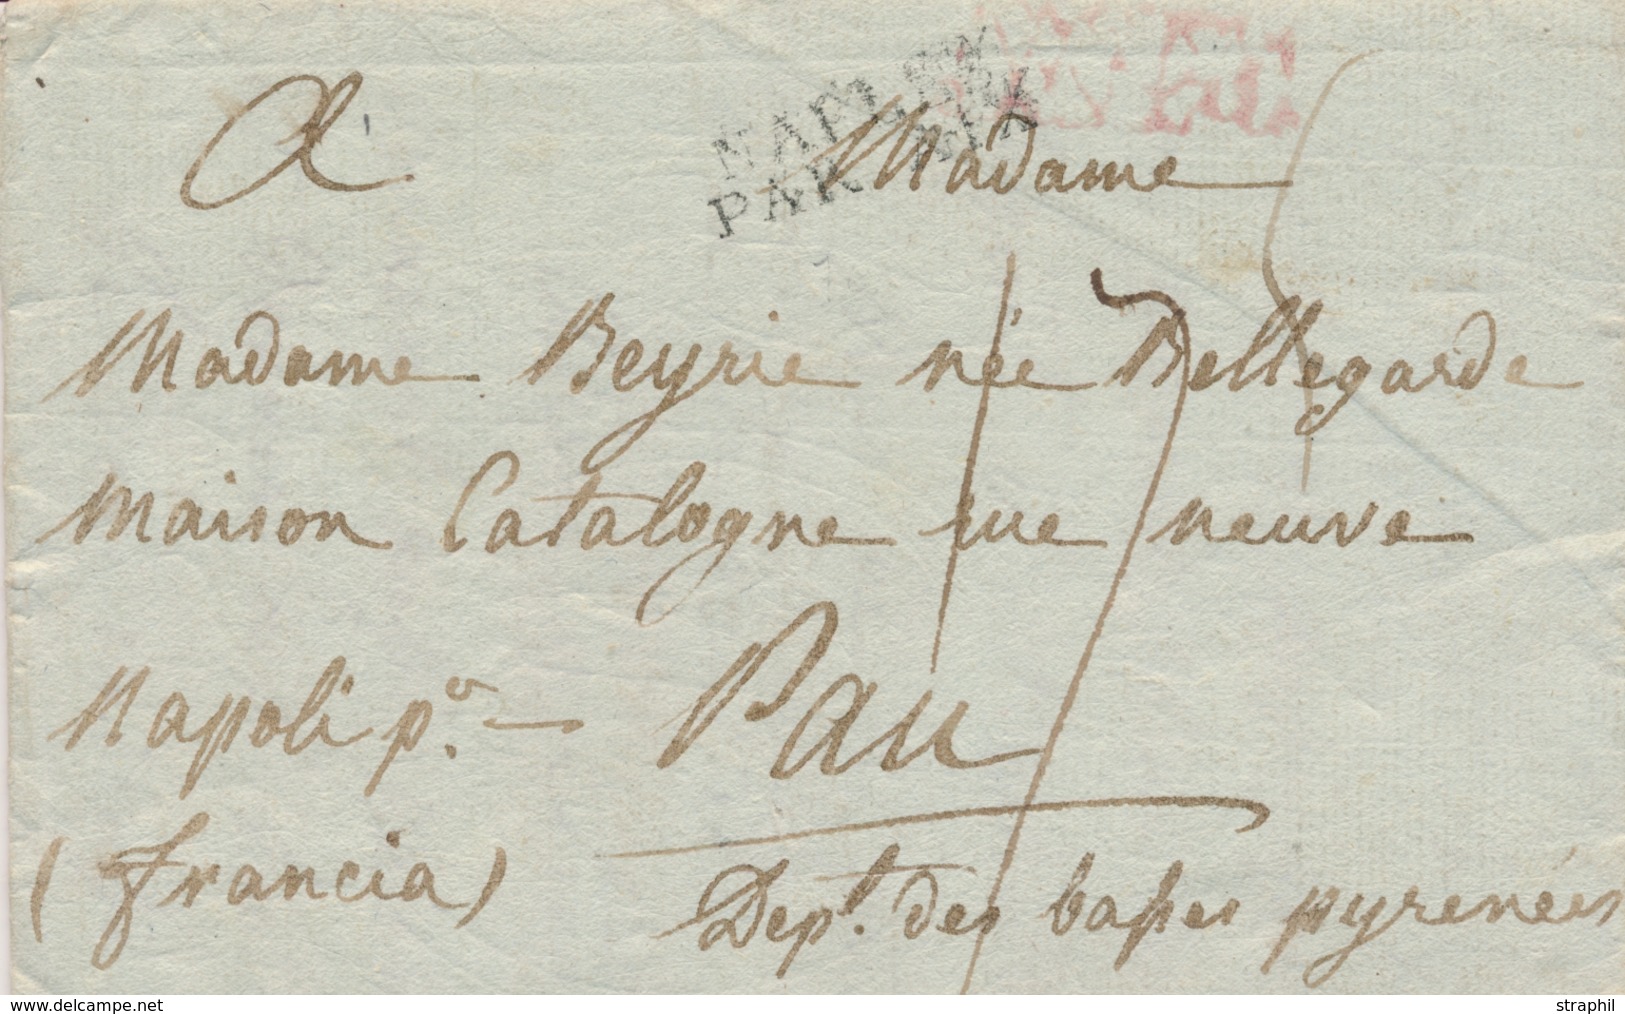 A Madame
Madame Beyrie née Bellegarde
maison Catalogne rue neuve
Napoli p.r Pau
(francia)
Dep.t des basses pyrenées
17
NAPLES
PAR
© delcampe.net
straphil